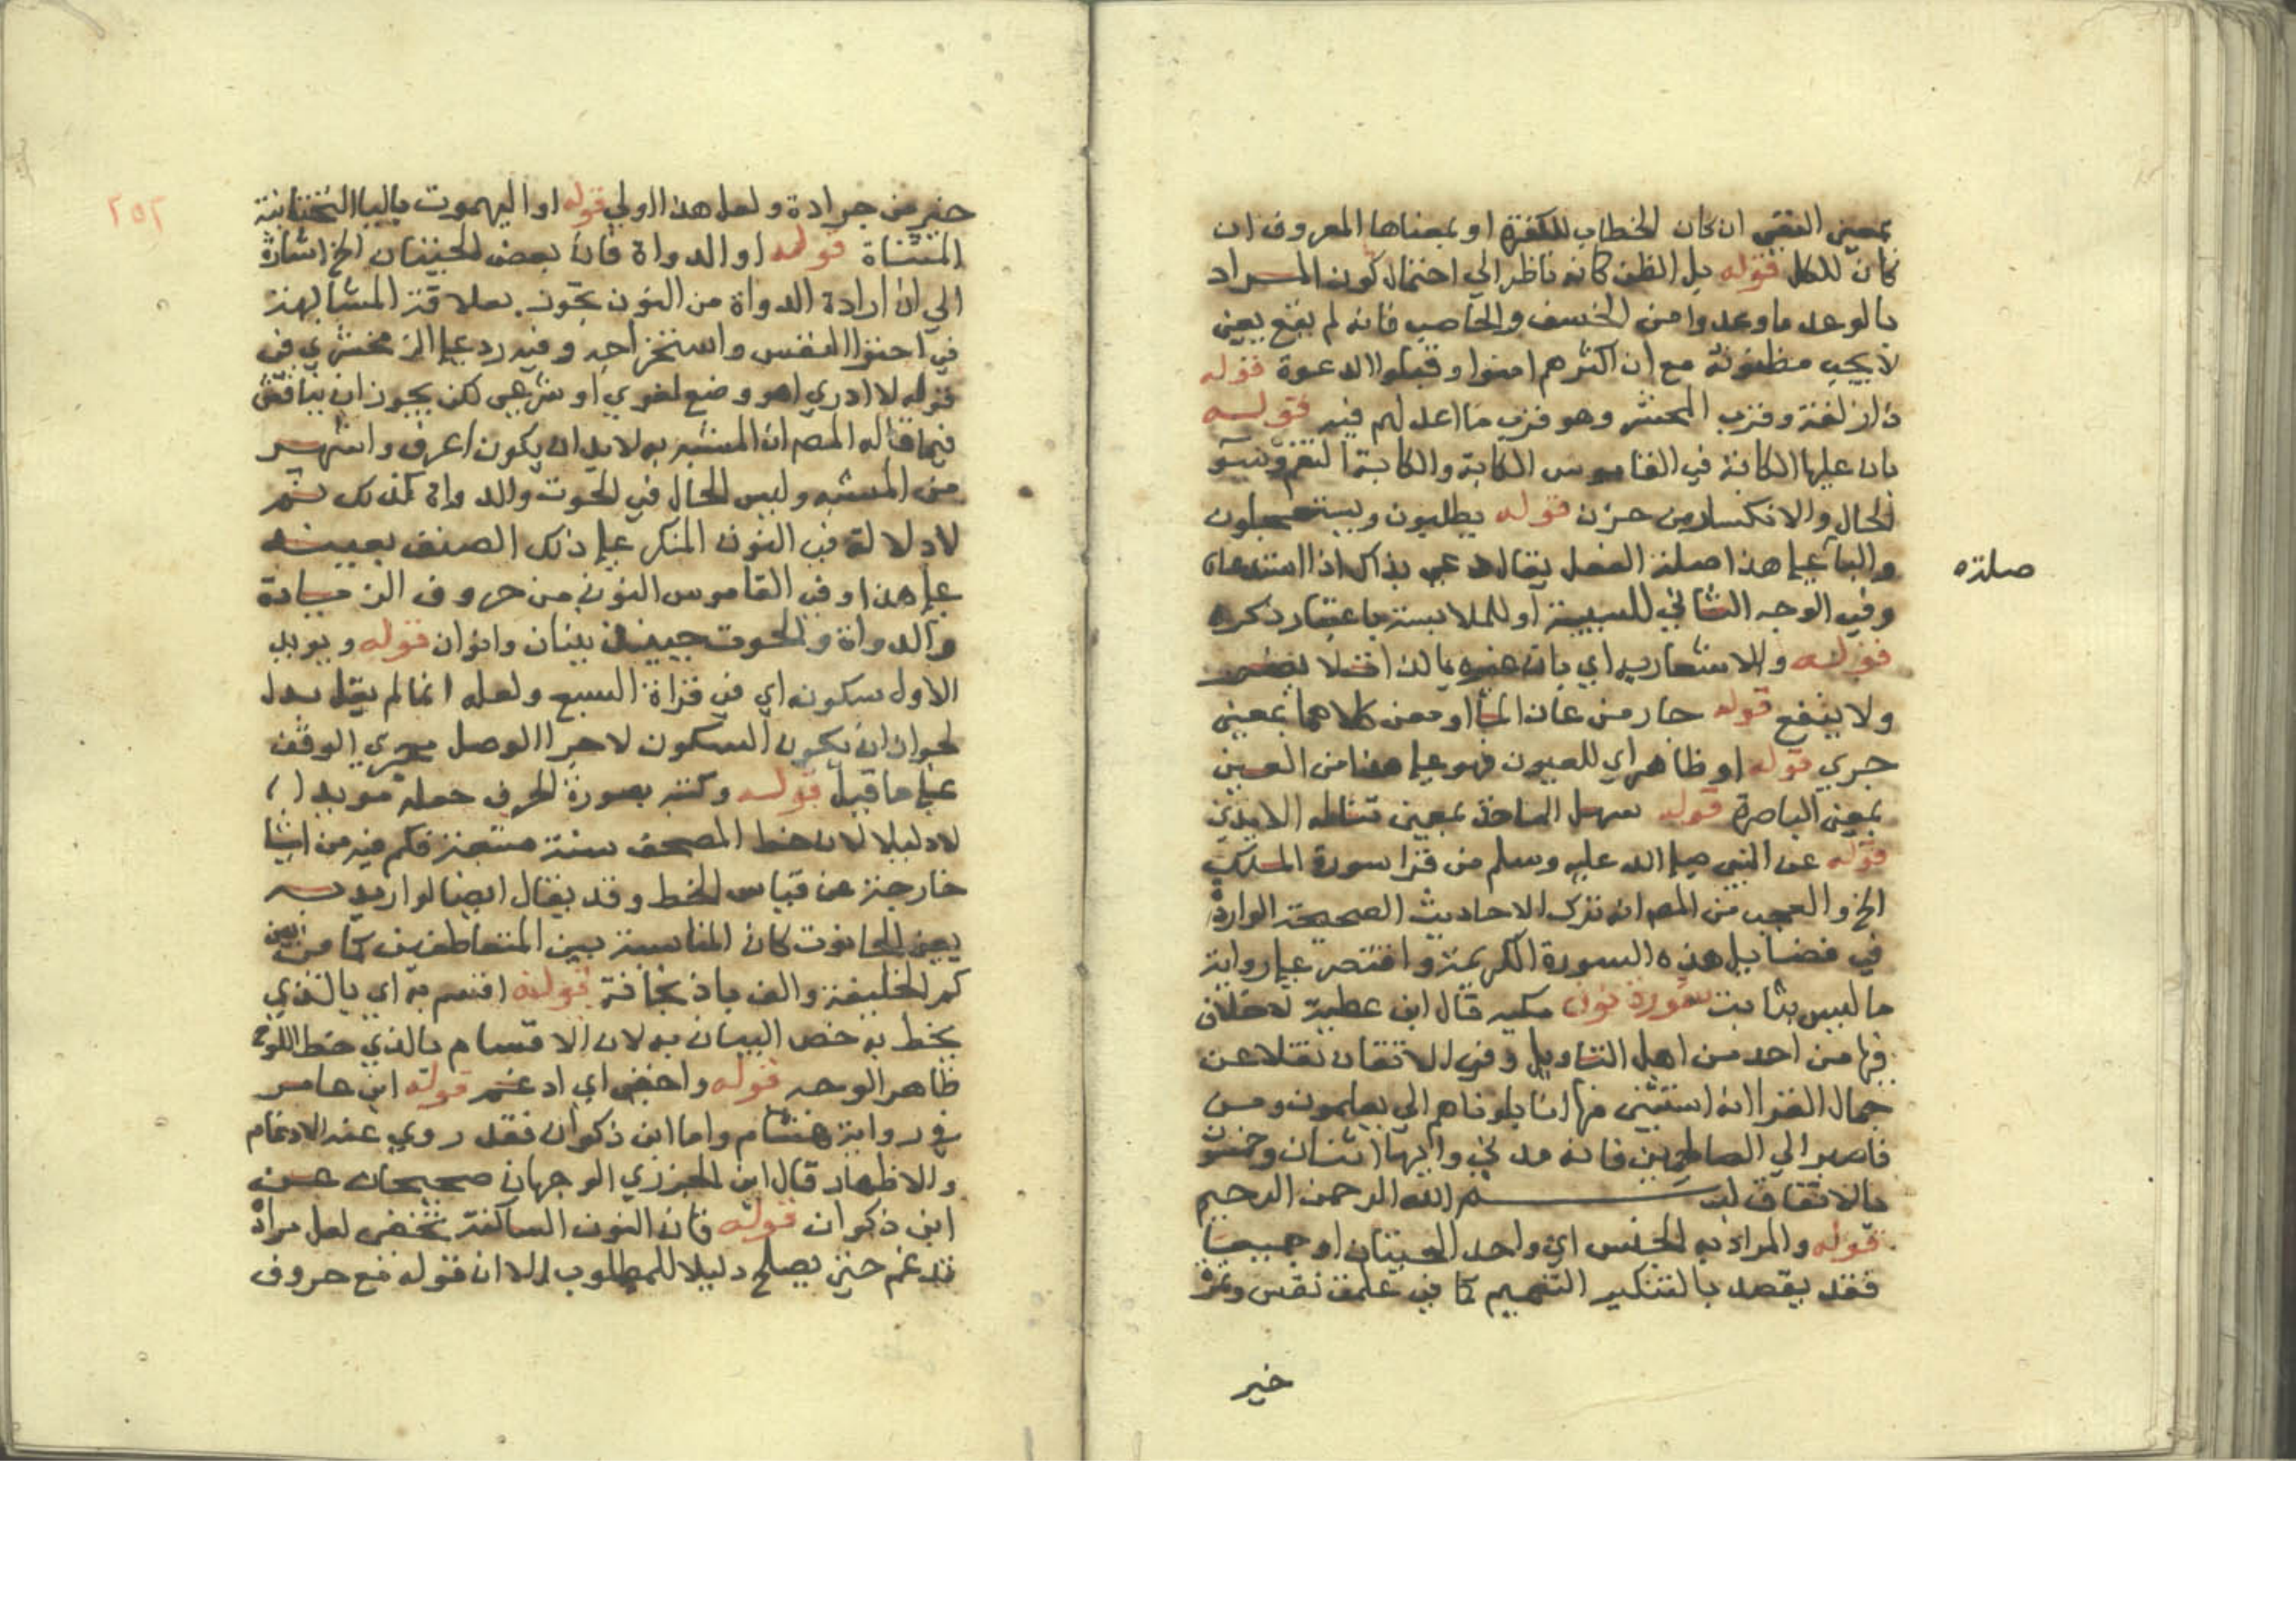 بمعني النفي ان كان الخطاب للكفرة او بمعناها المعروف ان
كان للكل قوله بل الظن كانه ناظر الي احتمال كون المراد
بالوعد ما وعدوا من الخسف والحاصب فانه لم يقع يعني
لا يجب مظنونه مع ان اكثرهم امنوا وقبلوا الدعوة قوله
ذا زلفة وقرب المحشر وهو قرب ما اعد لهم فيه قوله
بان عليها الكابة في القاموس الكابة والكابة الغم وسو
الحال والانكسار من حزن قوله يطلبون ويستعجلون
والبا علي هذا صلة الفعل يقال دعي بذاك اذا استدعاه
صلته
وفي الوجه الثاني للسببية او للملابسة باعتبار ذكره
قوله والاشعار به اي بان غيره بالذات لا يضر
ولا ينفع قوله جار من عان الما او معن كلاهما بمعني
جري قوله او ظاهر اي للعيون فهو علي هذا من العين
بمعني الباصرة قوله سهل الماخذ بمعني تناله الايدي
قوله عن النبي صلي الله عليه وسلم من قرا سورة الملك
الخ والعجب من المص انه ترك الاحاديث الصحيحة الواردة
في فضايل هذه السورة الكريمة واقتصر علي رواية
ما ليس بثابت سورة نون مكيه قال ابن عطية لا خلاف
فيها من احد من اهل التاويل وفي الاتقان نقلا عن
جمال القرا انه استثني منها انا بلوناهم الي يعلمون ومن
فاصبر الي الصالحين فانه مدني وايها اثنتان وخمسون
بالاتفاق بسم الله الرحمن الرحيم
قوله والمراد به الجنس اي واحد الحيتان او جميعها
فقد يقصد بالتنكير التعميم كما في علمت نفس وتمرة
خير
٢٥٢
خير من جرادة ولعل هذا اولي قوله او اليهموت باليا التحتانية
المثناة قوله او الدواة فان بعض الحيتان الخ اشارة
الي ان ارادة الدواة من النون تجوز بعلاقة المشابهة
في احتوا النفس واستخراجه وفيه رد علي الزمخشري في
قوله لا ادري اهو وضع لغوي او شرعي لكن يجوز ان يناقش
فيما قاله المص ان المشبه به لا بد ان يكون اعرف واشهر
من المشبه وليس الحال في الحوت والدواة كذلك ثم
لا دلالة في النون المنكر علي ذلك الصنف بعينه
علي هذا وفي القاموس النون من حروف الزيادة
والدواة والحوت جمعه نينان وانوان قوله ويويد
الاول سكونه اي في قراة السبع ولعله انما لم يقل يدل
لجواز ان يكون السكون لاجرا الوصل مجري الوقف
علي ما قيل قوله وكتبه بصورة الحرف جعله مويدا
لا دليلا لان خط المصحف سنة متبعة فكم فيه من اشيا
خارجة عن قياس الخط وقد يقال ايضا لو اريد به
يعني الحانوت كان المناسبة بين المتعاطفين كما من بين
كم الخليفة والف باذنجانة قوله اقسم به اي بالذي
يخط به خص البيان به لان الاقسام بالذي خط اللوح
ظاهر الوجه قوله واخفي اي ادغم قوله ابن عامر
في رواية هشام واما ابن ذكوان فقد روي عنه الادغام
والاظهار قال ابن الجزري الوجهان صحيحان عن
ابن ذكوان قوله فان النون الساكنة تخفي لعل مراده
تدغم حتي يصلح دليلا للمطلوب الا ان قوله مع حروف